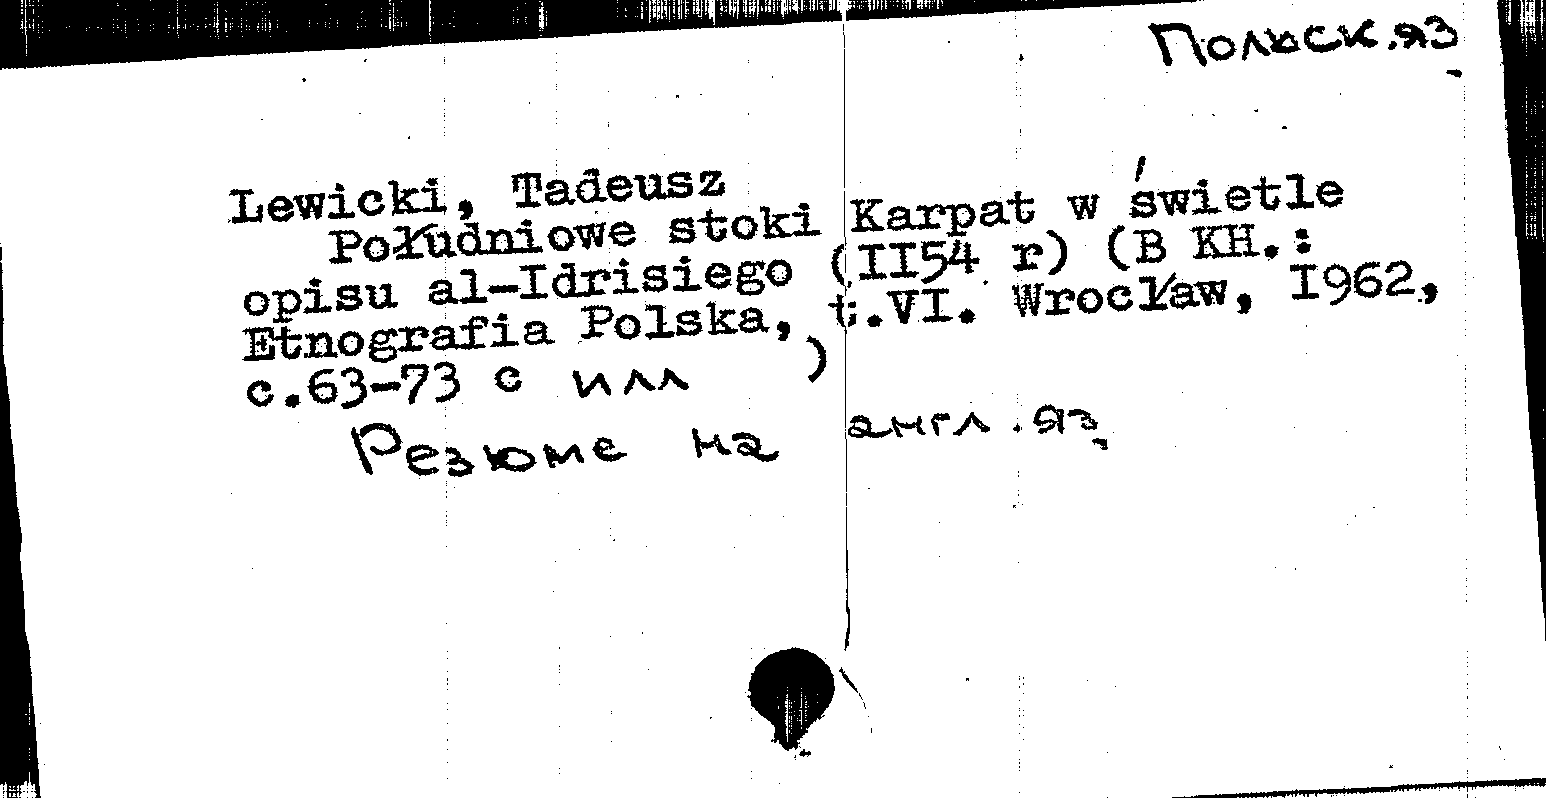 Польск.яз.
Lewicki, Tadeusz
Południowe stoki Karpat w świetle
opisu al-Idrisiego (II54 r) (В КН.:
Etnografia Polska, t.VI. Wrocław, I962,
с.63-73 с илл )
Резюме на англ.яз.